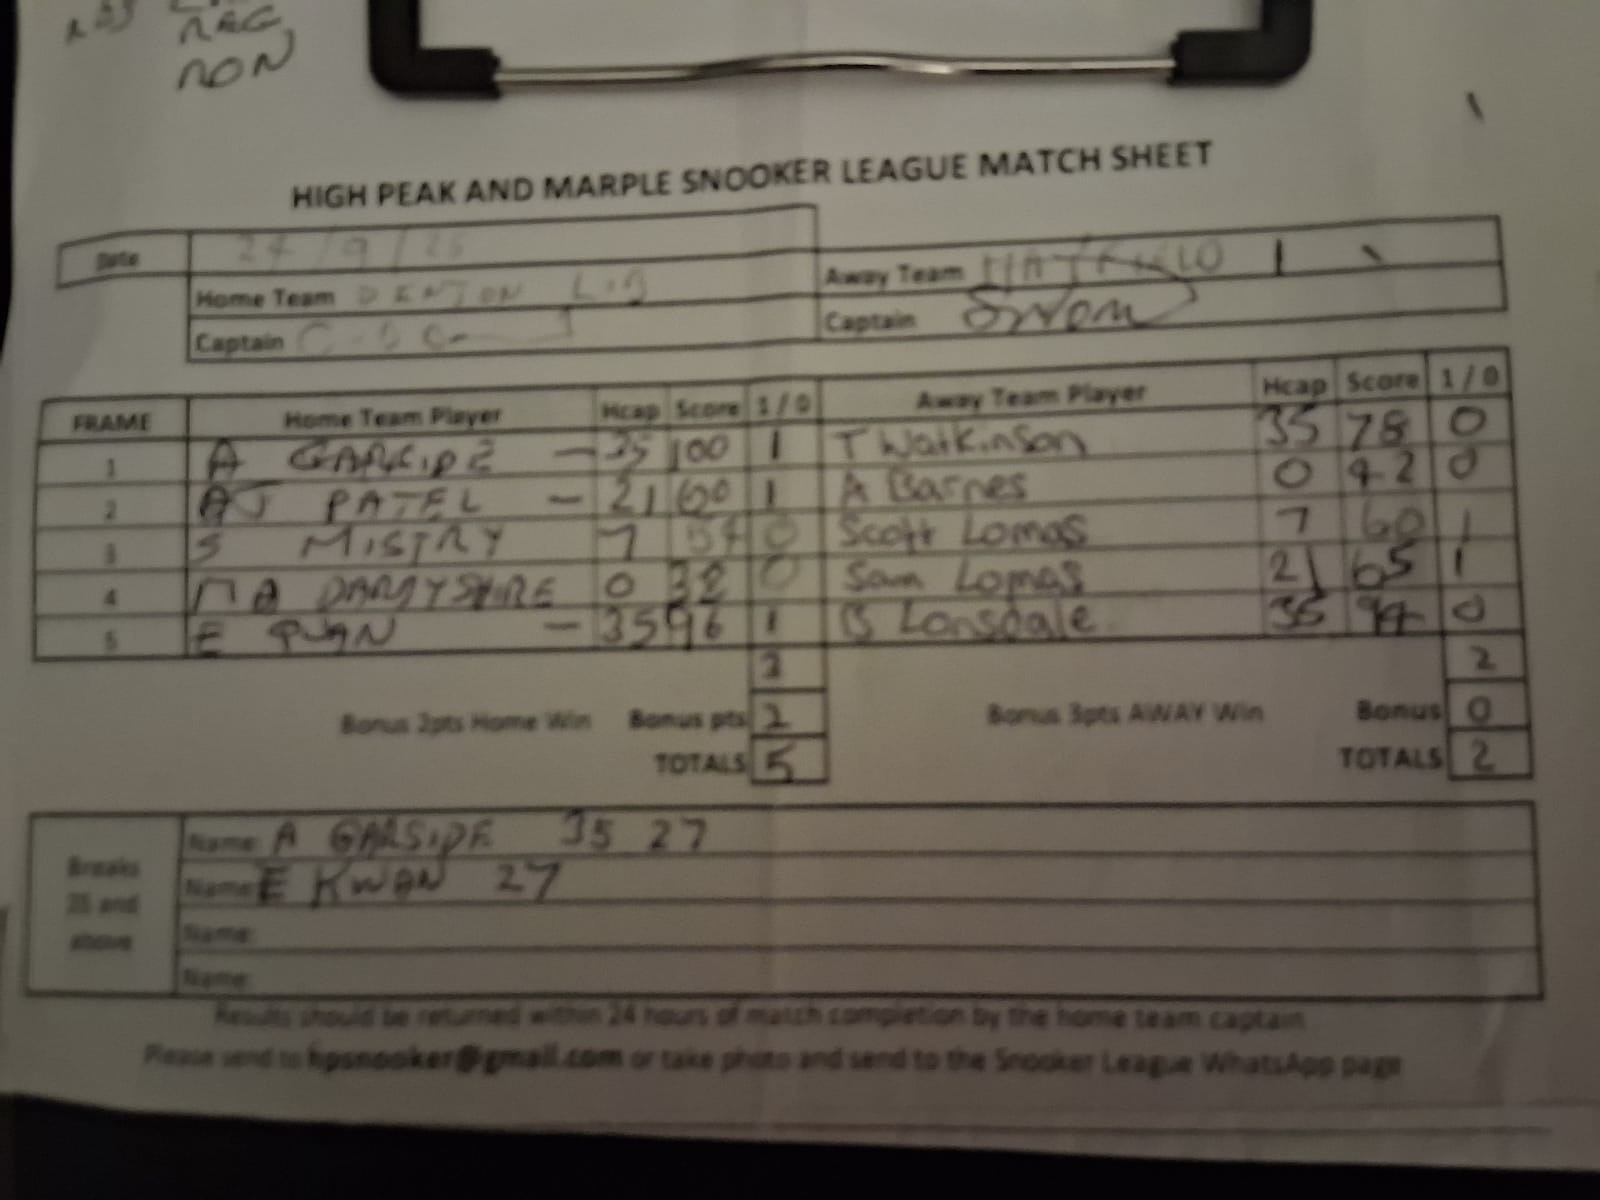 RAG
RON
HIGH PEAK AND MARPLE SNOOKER LEAGUE MATCH SHEET
Date 24/9/25
Home Team DENTON LIB Away Team HAYFIELD 1
Captain Captain
FRAME Home Team Player Hcap Score 1/0 Away Team Player Hcap Score 1/0
1 A GARSIDE - 35 100 1 T Watkinson 35 78 0
2 AJ PATEL - 21 60 1 A Barnes 0 42 0
3 S MISTRY 7 54 0 Scott Lomas 7 60 1
4 DARBYSHIRE 0 32 0 Sam Lomas 21 65 1
5 E QUAN - 35 96 1 B Lonsdale 35 94 0
3 2
Bonus 2pts Home Win Bonus pts 2 Bonus 3pts AWAY Win Bonus 0
TOTALS 5 TOTALS 2
Breaks 25 and above
Name: A GARSIDE 35 27
Name: E KWAN 27
Name:
Name:
Results should be returned within 24 hours of match completion by the home team captain
Please send to hpsnooker@gmail.com or take photo and send to the Snooker League WhatsApp page